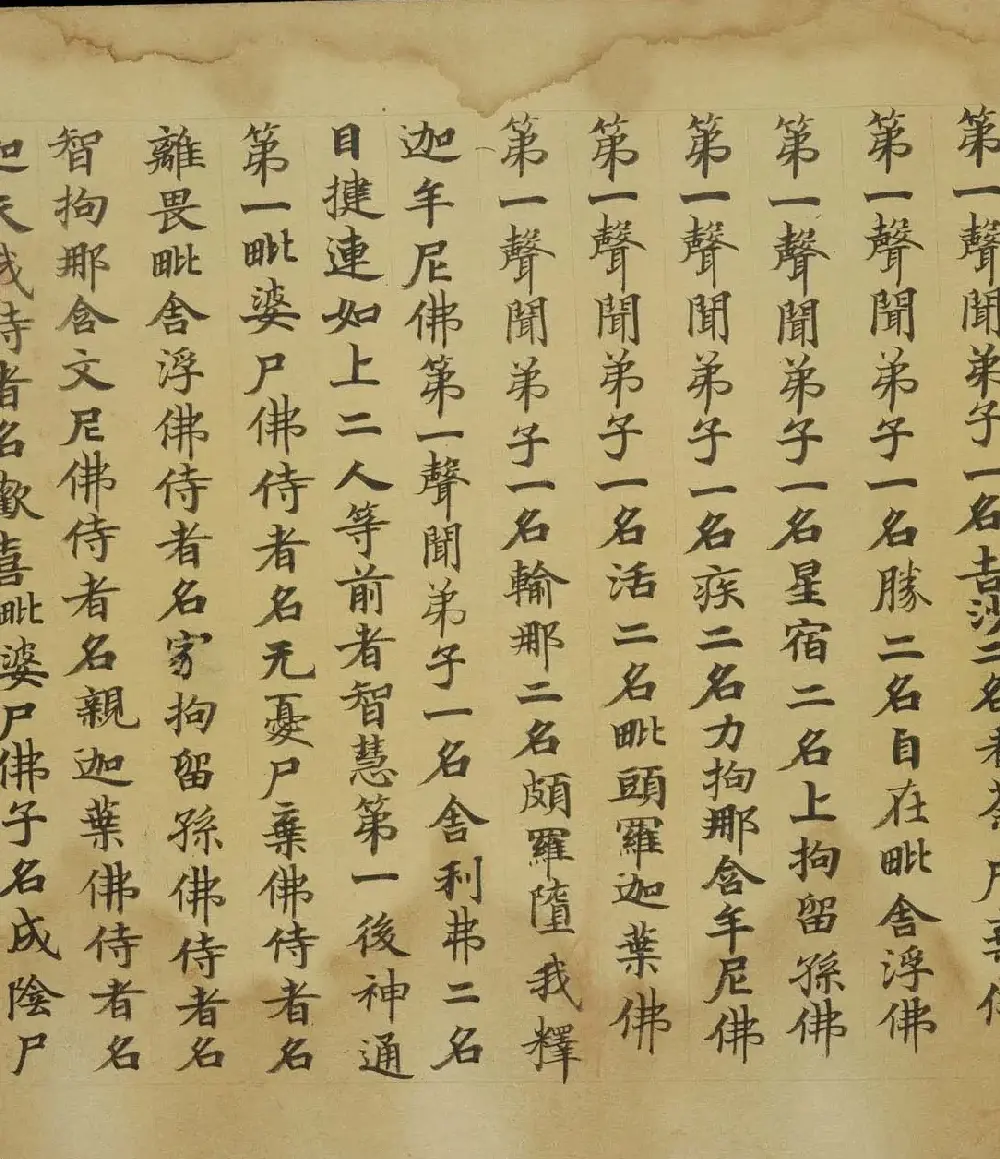 第一聲聞弟子一名吉沙二名尸棄佛
第一聲聞弟子一名勝二名自在毗舍浮佛
第一聲聞弟子一名星宿二名上拘留孫佛
第一聲聞弟子一名疾二名力拘那含牟尼佛
第一聲聞弟子一名活二名毗頭羅迦葉佛
第一聲聞弟子一名輪那二名頗羅墮我釋
迦牟尼佛第一聲聞弟子一名舍利弗二名
目揵連如上二人等前者智慧第一後神通
第一毗婆尸佛侍者名无憂尸棄佛侍者名
離畏毗舍浮佛侍者名家拘留孫佛侍者名
智拘那含文尼佛侍者名親迦葉佛侍者名
迦侍者名歡喜毗婆尸佛子名成陰尸